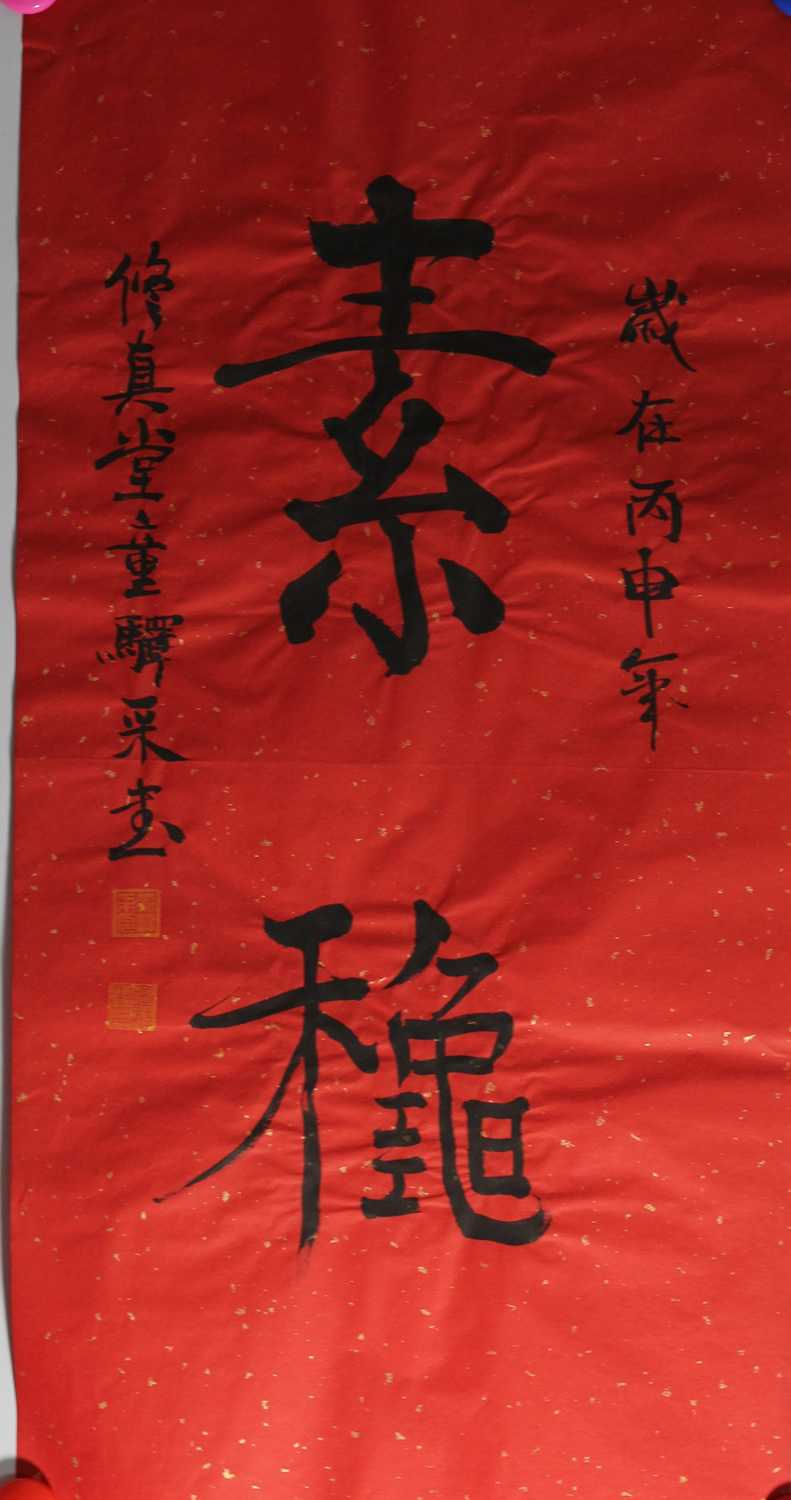 歲在丙申年
素
穐
修真堂童驛采書